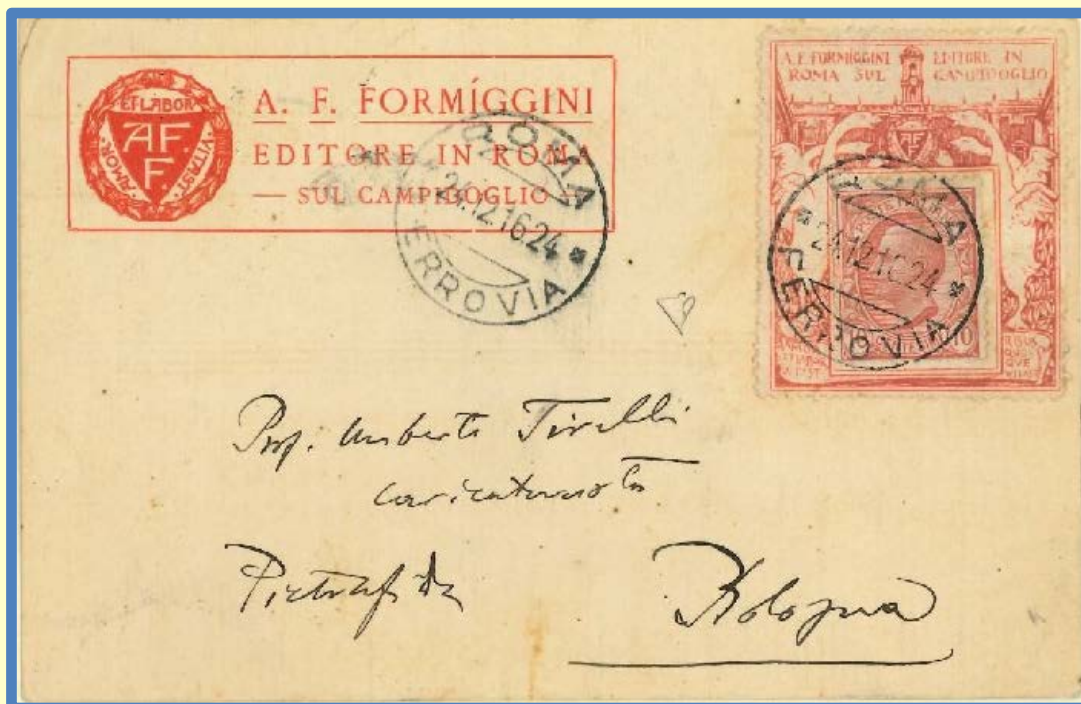 ET LABOR
VITAST
AMOR
A F
F
A. F. FORMÍGGINI
EDITORE IN ROMA
— SUL CAMPIDOGLIO —
ROMA
24.12.16.24
FERROVIA
A. F. FORMIGGINI EDITORE IN
ROMA SUL CAMPIDOGLIO
ROMA
24.12.16.24
FERROVIA
10 10
Prof. Umberto Tirelli
caricaturista
Bologna